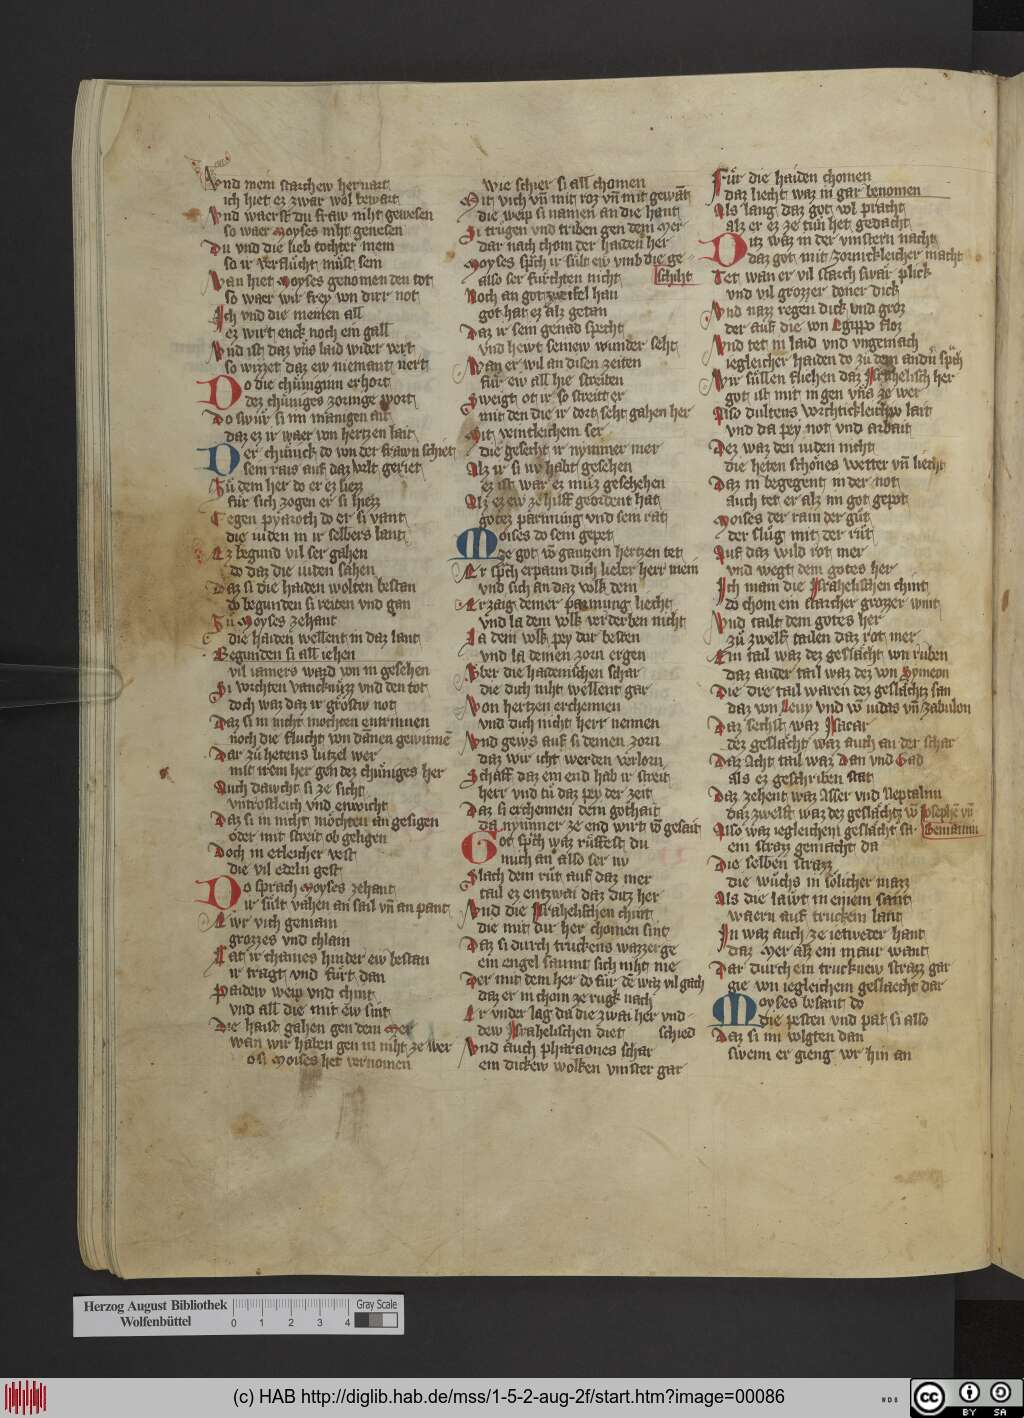 Vnd mein starchew heruart
ich hiet ez zwar wol bewart
Vnd waerst du fraw niht gewesen
so waer Moyses niht genesen
Du vnd die lieb tochter mein
so ir verflucht müst sein
Wan hiet Moyses genomen den tot
so waer wir frey von diser not
Ich vnd die meinen all
ez wirt enck noch ein gall
Vnd ist daz vns laid wider vert
so wizzet daz ew niemant nert
Do die chüniginn erhort
dez chüniges zornige wort
Do swür si im manigen ait
daz ez ir waer von hertzen lait
Der chünick do von der frawn schiet
sein rais auf daz velt geriet
Zü dem her do er ez liezz
für sich zogen er si hiezz
Gegen pyaroth do er si vant
die iuden in ir selbers lant
Ez begund vil ser gahen
do daz die iuden sahen
Daz si die haiden wolten bestan
do begunden si reiten vnd gan
Zü Moyses zehant
die haiden wellent in daz lant
Begunden si all iehen
vil iamers ward von in gesehen
Si vorchten vancknüzz vnd den tot
doch waz daz ir gröstw not
Daz si in nicht mochten entrinnen
noch die flucht von danen gewinnē
Dar zü hetens lutzel wer
mit irem her gen dez chüniges her
Auch dawcht si ze sicht
vntrostleich vnd enwicht
Daz si in nicht möchten an gesigen
oder mit streit ob geligen
Doch in etleicher vest
die vil edeln gest
Do sprach Moyses zehant
ir sült vahen an sail vn̄ an pant
Ewr vich gemain
grozzes vnd chlain
Lat ir chaines hinder ew bestan
ir tragt vnd fürt dan
Paidew weip vnd chint
vnd all die mit ew sint
Die haist gahen gen dem Mer
wan wir haben gen in niht ze wer
o si Moises het vernomen
Wie schier si all chomen
Mit vich vn̄ mit roz vn̄ mit gewāt
die weip si namen an die hant
Si trugen vnd triben gen dem Mer
dar nach chom der haiden her
Moyses sp̄ch ir sült ew vmb die ge-
also ser fürchten nicht schiht
Noch an got zweifel han
got hat ez alz getan
Daz ir sein genad specht
vnd hewt seinew wunder seht
Wan er wil an disen zeiten
für ew all hie streiten
Sweigt ot ir so streitt er
mit den die ir dort seht gahen her
Mit veintleichem ser
die gesecht ir nymmer mer
Alz ir si nv habt gesehen
ez ist war ez müz geschehen
Alz ez ew ze hilff geordent hat
gotez parmung vnd sein rat
Moises do sein gepet
ze got vō gantzem hertzen tet
Er sp̄ch erparm dich lieber herr mein
vnd sich an daz volk dein
Erzaig deiner parmung liecht
vnd la dein volk verderben nicht
La dem volk pey dar besten
vnd la deinen zorn ergen
Vber die haidenischen schar
die dich niht wellent gar
Von hertzen erchennen
vnd dich nicht herr nennen
Vnd gews auf si deinen zorn
daz wir icht werden verlorn
Schaff daz ein end hab ir streit
herr vnd tü daz pey der zeit
Daz si erchennen dein gothait
da nymmer ze end wirt vō gesait
Got sp̄ch waz rüffest du
mich an also ser nv
Slach dein rüt auf daz mer
tail ez entzwai daz ditz her
Vnd die Israhelischen chint
die mit dir her chomen sint
Daz si durch truckens wazzer ge
ein engel saumt sich niht me
Der mit dem her do für de waz vil gach
daz er in chom ze rugk nach
Er vnder lag da die zwai her vnd-
dew Israhelischen diet schied
Vnd auch pharaones schar
ein dickew wolken vinster gar
Für die haiden chomen
daz liecht waz in gar benomen
Als lang daz got wol pracht
alz er ez ze tün het gedacht
Ditz waz in der vinstern nacht
daz got mit zornickleicher macht
Tet wan er vil starch swar plick
vnd vil grozzer doner dick
Vnd nazz regen dick vnd groz
der auf die von Egippo floz
Vnd tet in laid vnd vngemach
iegleicher haiden do zü dem andn̄ sp̄ch
Wir süllen fliehen daz Israhelisch her
got ist mit in gen vns ze wer
Also dultens vorchtickleichew lait
vnd da pey not vnd arbait
Dez waz den iuden nicht
die heten schönes wetter vn̄ liecht
Daz in begegent in der not
auch tet er alz im got gepot
Moises der rain der güt
der slüg mit der rüt
Auf daz wild rot mer
vnd wegt dem gotes her
Ich main die Israhelischen chint
do chom ein starcher grozzer wint
Vnd tailt dem gotes her
zü zwelf tailen daz rot mer
Ein tail waz dez geslächt von ruben
daz ander tail waz dez von Symeon
Die dre tail waren dez geslächtz san
daz von Leuy vnd vō iudas vn̄ zabulon
Daz sechst waz Isacar
dez geslächt waz auch an der schar
Daz Acht tail waz Dan vnd Gad
als ez geschriben stat
Daz zehent waz Asser vnd Neptalim
daz zwelft waz dez geslächtz vō Josephē vn̄
Also waz iegleichem geslächt sa- Beniamin
ein strazz gemacht da
Die selben strazz
die wüchs in sölicher mazz
Als die lawt in einem sant
waern auf truckem lant
In waz auch ze ietweder hant
daz Mer alz ein maur want
Dar durch ein trucknew strazz gar
gie von iegleichem geslaecht dar
Moyses besant do
die pesten vnd pat si also
Daz si im volgten dan
swenn er gieng vor hin an
Herzog August Bibliothek
Wolfenbüttel
0 1 2 3 4
Gray Scale
(c) HAB http://diglib.hab.de/mss/1-5-2-aug-2f/start.htm?image=00086
WDB
cc BY SA